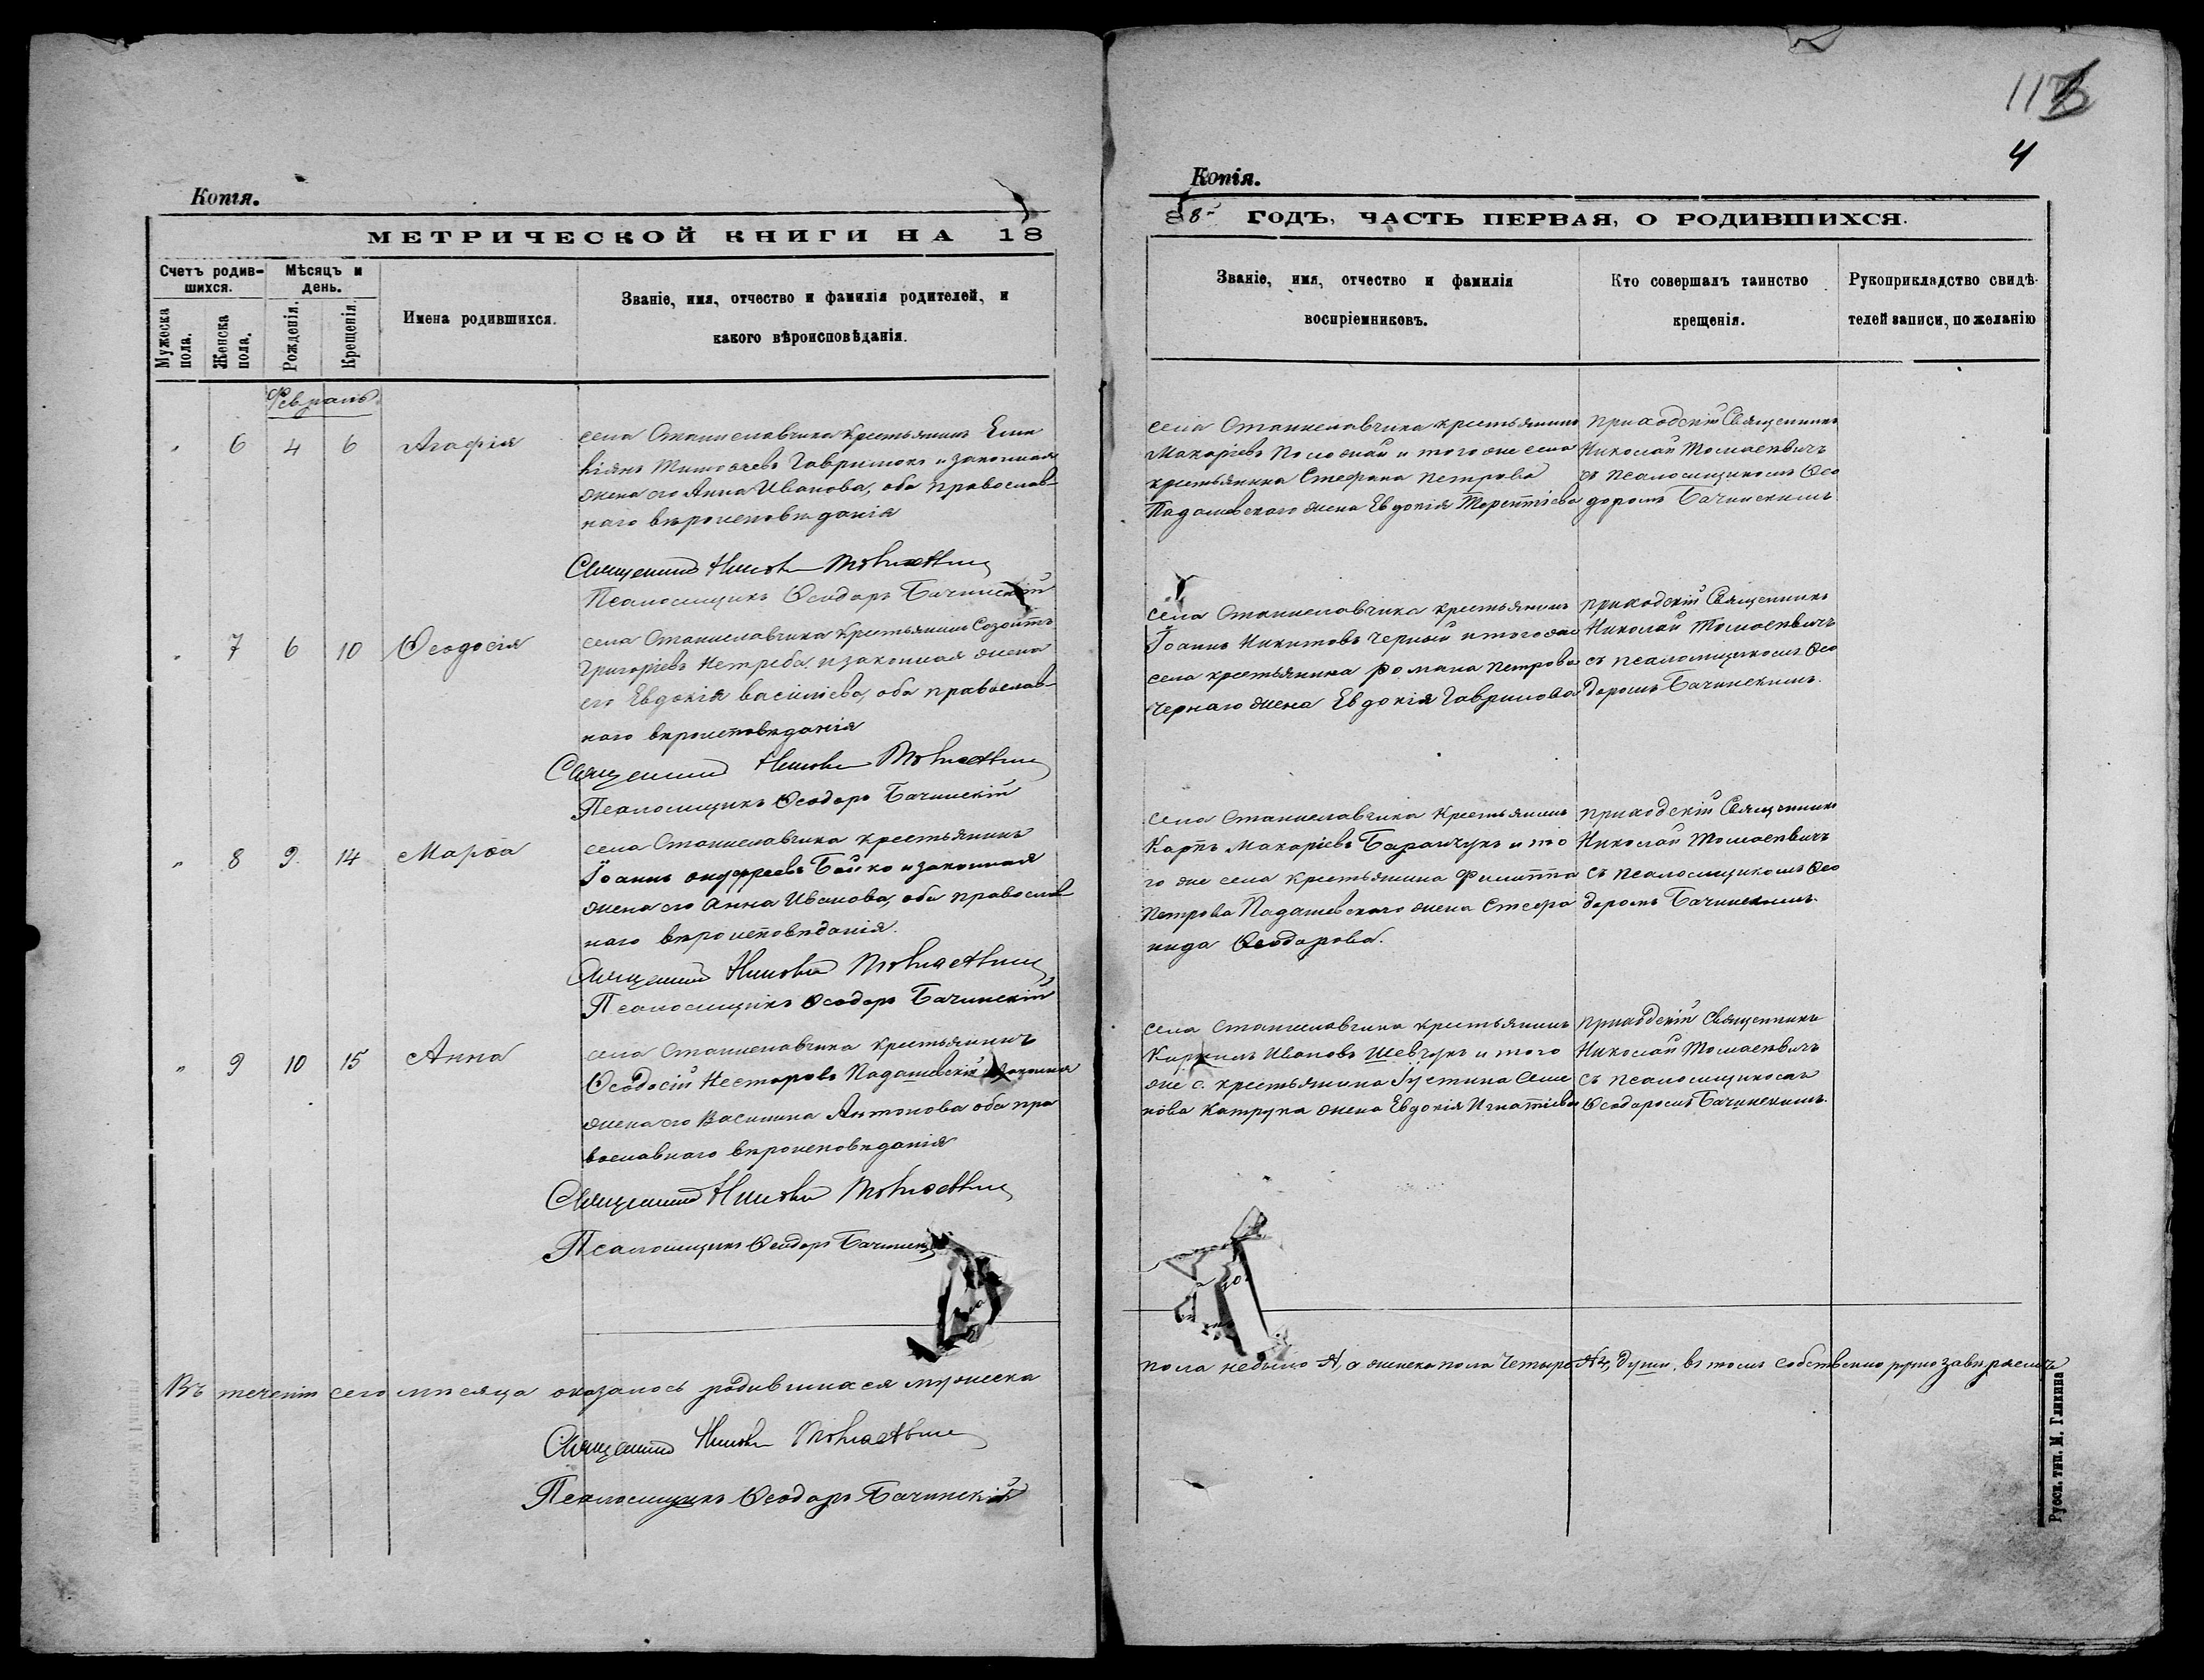 Копія.
МЕТРИЧЕСКОЙ КНИГИ НА 18
Счетъ родив-
шихся.
Мѣсяцъ и
день.
Мужеска
пола.
Женска
пола.
Рожденія.
Крещенія.
Имена родившихся.
Званіе, имя, отчество и фамилія родителей, и
какого вѣроисповѣданія.
Февраль
6 4 6 Агафія
села Станиславчика крестьянинъ Еми
ліянъ Тимофеевъ Гаврилюкъ и законная
жена его Анна Иванова, оба православ-
наго вѣроисповѣданія
Священникъ Николай Томасевичъ
Псаломщикъ Ѳеодоръ Бачинскій
7 6 10 Ѳеодосія
села Станиславчика крестьянинъ Созонтъ
Григоріевъ Нетреба и законная жена
его Евдокія Василіева, оба православ-
наго вѣроисповѣданія
Священникъ Николай Томасевичъ
Псаломщикъ Ѳеодоръ Бачинскій
8 9 14 Марѳа
села Станиславчика крестьянинъ
Іоаннъ Онуфреевъ Бойко и законная
жена его Анна Иванова, оба православ
наго вѣроисповѣданія.
Священникъ Николай Томасевичъ
Псаломщикъ Ѳеодоръ Бачинскій
9 10 15 Анна
села Станиславчика крестьянинъ
Ѳеодосій Несторовъ Подашевскій законная
жена его Василина Антонова оба пра
вославнаго вѣроисповѣданія
Священникъ Николай Томасевичъ
Псаломщикъ Ѳеодоръ Бачинскій
Въ теченіи сего мѣсяца оказалось родившихся мужеска
Священникъ Николай Томасевичъ
Псаломщикъ Ѳеодоръ Бачинскій
4
Копія.
88 ГОДЪ, ЧАСТЬ ПЕРВАЯ, О РОДИВШИХСЯ.
Званіе, имя, отчество и фамилія
воспріемниковъ.
Кто совершалъ таинство
крещенія.
Рукоприкладство свидѣ-
телей записи, по желанію
села Станиславчика крестьянинъ
Макаріевъ и того же села
крестьянина Стефана Петрова
Падашевскаго жена Евдокія Терентіева
приходскій Священникъ
Николай Томасевичъ
съ псаломщикомъ Ѳео
доромъ Бачинскимъ
села Станиславчика крестьянинъ
Іоаннъ Никитовъ Черный и того же
села крестьянина Романа Петрова
Чернаго жена Евдокія Гаврилова
приходскій Священникъ
Николай Томасевичъ
съ псаломщикомъ Ѳео
доромъ Бачинскимъ.
села Станиславчика крестьянинъ
Карпъ Макаріевъ Баранчукъ и то
го же села крестьянина Филиппа
Петрова Падашевскаго жена Стефа
нида Ѳеодорова.
приходскій Священникъ
Николай Томасевичъ
съ псаломщикомъ Ѳео
доромъ Бачинскимъ.
села Станиславчика крестьянинъ
Кириллъ Ивановъ Шевчукъ и того
же с. крестьянина Іустина Симе
нова Катрука жена Евдокія Игнатіева
приходскій Священникъ
Николай Томасевичъ
съ псаломщикомъ
Ѳеодоромъ Бачинскимъ.
пола небыло, а женска пола четыре, 4, души, въ томъ собственноручно завѣряемъ
Русск. тип. М. Гликина